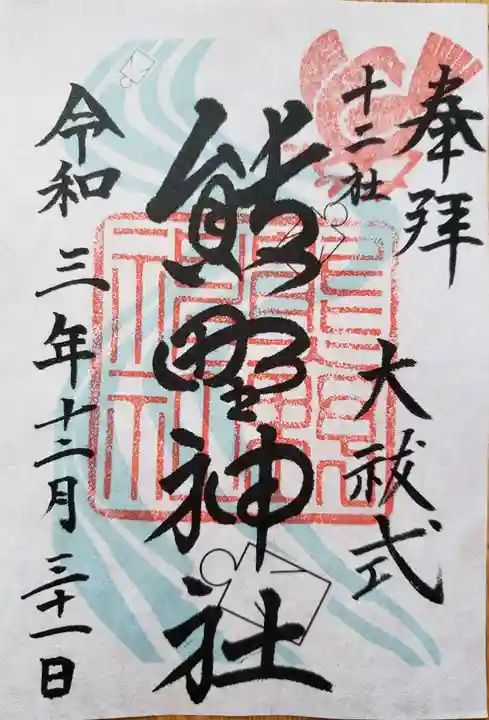 奉拝
大祓式
十二社
熊野神社
令和三年十二月三十一日